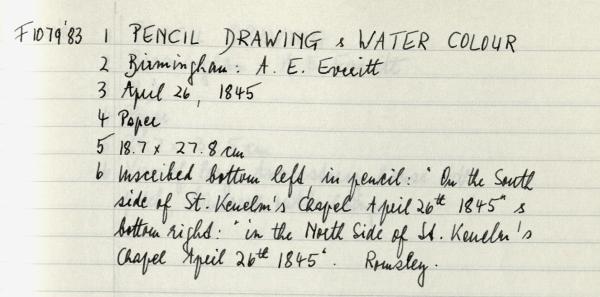 F1079'83 1 PENCIL DRAWING & WATER COLOUR
2 Birmingham: A. E. Everitt
3 April 26, 1845
4 Paper
5 18.7 x 27.8 cm
6 Inscribed bottom left, in pencil: "On the South
side of St. Kenelm's Chapel April 26th 1845" &
bottom right: "in the North Side of St. Kenelm's
Chapel April 26th 1845". Romsley.